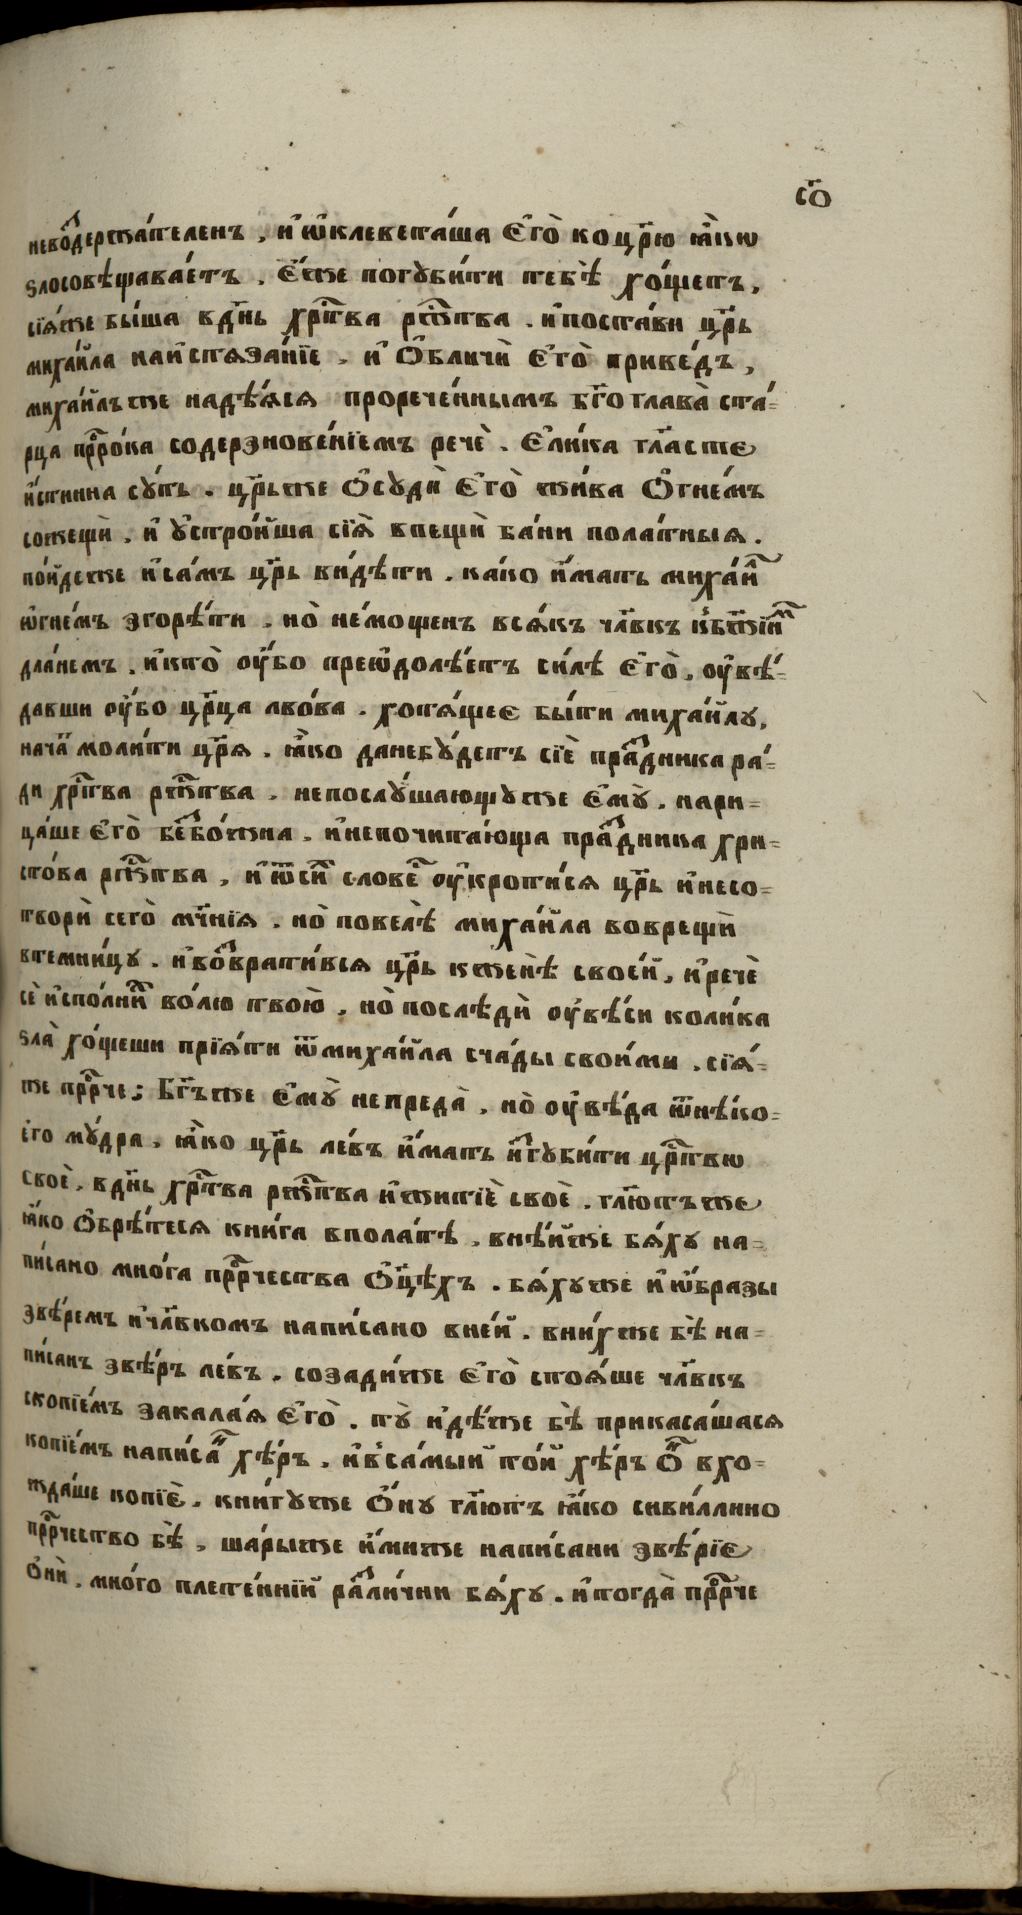 с҃о
невоз̾держа́теленъ , и҆ ѡ҆клевета́ша є҆го̀ коцр҃ю ꙗ҆́кѡ
ѕлосовѣщава́етъ . є҆́же погꙋби́ти тебѐ хо́щетъ ,
сїѧ́же бы́ша вдн҃ь хрⷭ҇това ржⷭ҇тва . и҆поста́ви цр҃ь
миха́йла наи҆стѧза́нїе , и҆ ѡ҆бличѝ є҆го̀ приве́дъ ,
миха́йлъже надѣ́ѧсѧ прорече́ннымъ бг҃о глава̀ ста́-
рца прⷪ҇ро́ка содерзнове́нїемъ речѐ . є҆ли́ка гл҃асте
и҆́стинна сꙋ́ть . цр҃ьже ѡ҆сꙋдѝ є҆го̀ жи́ва ѻ҆гне́мъ
сожещѝ , и҆ ᲂу҆стро́йша сїѧ̀ впещѝ ба́ни пола́тныѧ .
по́йдеже и҆са́мъ цр҃ь ви́дѣти . ка́ко и҆́мать миха́илъ
ѻ҆гне́мъ згорѣ́ти . но̀ не́мощенъ всѧ́къ чл҃вкъ кбж҃їимъ
дла́немъ . и҆кто̀ ᲂу҆́бо преѡ҆долѣ́етъ си́лѣ є҆го̀ , ᲂу҆вѣ́-
давши ᲂу҆́бо цр҃ца лво́ва . хотѧ́щеє бы́ти миха́йлꙋ ,
нача́ моли́ти цр҃ѧ . ꙗ҆́ко данебꙋ́детъ сїѐ пра́здника ра́-
ди хрⷭ҇това ржⷭ҇тва . непослꙋ́шающꙋже є҆мꙋ̀ . нари-
ца́ше є҆го̀ безбо́жна . и҆непочита́юща пра́здника хри-
сто́ва ржⷭ҇тва , и҆ ѿси́хъ слове́съ ᲂу҆кроти́сѧ цр҃ь и҆несо-
творѝ сего̀ мч҃нїѧ . но̀ повелѣ̀ миха́йла воврещѝ
втемни́цꙋ . и҆возврати́всѧ цр҃ь кженѣ̀ свое́й , и҆речѐ
сѐ и҆спо́лнихъ во́лю твою̀ , но̀ послѣдѝ ᲂу҆вѣ́си коли́ка
ѕла̀ хо́щеши прїѧ́ти ѿмиха́йла сча́ды свои́ми . сїѧ́-
же прⷪ҇рче ; бг҃ъже є҆мꙋ̀ непреда̀ , но̀ ᲂу҆вѣ́да ѿнѣ́ко-
его мꙋ́дра , ꙗ҆́ко цр҃ь ле́въ и҆́мать и҆згꙋби́ти црⷭ҇твѡ
своѐ , вдн҃ь хрⷭ҇това ржⷭ҇тва и҆житїѐ своѐ . гл҃ютъже
ꙗ҆́ко ѡ҆брѣ́тесѧ кни́га вполатѣ , вне́йже бѧ́хꙋ на-
пи́сано мно́га прⷪ҇рчества ѻ҆цр҃ѣхъ . бѧ́хꙋже и҆ ѡ҆́бразы
звѣ́ремъ и҆чл҃вкомъ напи́сано вне́й . вни́хже бѣ̀ на-
пи́санъ звѣ́ръ ле́въ . созади́же є҆го̀ стоѧ́ше чл҃вкъ
скопїе́мъ закала́ѧ є҆го̀ . тꙋ̀ и҆дѣ́же бѣ̀ прикаса́шасѧ
копїе́мъ написа́нъ хѣ́ръ , и҆в̾са́мый то́й хѣ́ръ ѻ҆́нъ вхо-
жда́ше копїѐ . кни́гꙋже ѻ҆́нꙋ гл҃ютъ ꙗ҆́ко сиви́ллино
прⷪ҇рчество бѣ̀ , ша́рыже и҆́миже напи́сани звѣ́рїє
ѻ҆нѝ . мно́го плете́ннїй разли́чни бѧ́хꙋ . и҆тогда̀ прⷪ҇рче